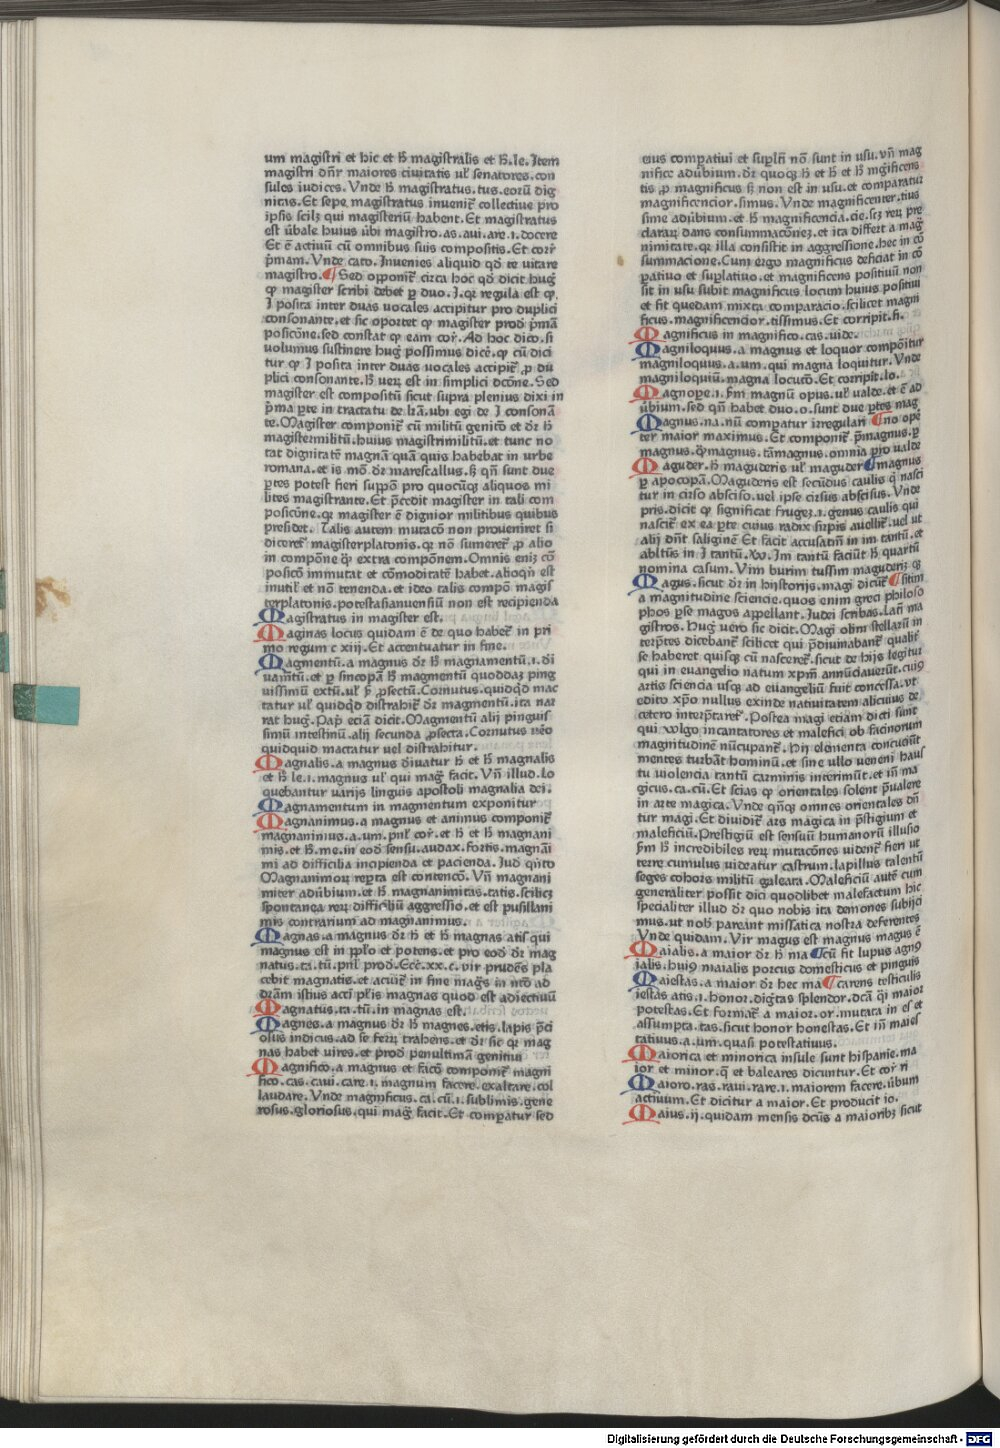 um magistri et hic et h̄ magistralis et h̄.le. Item
magistri dn̄r maiores ciuitatis ul̓ senatores.con
sules iudices. Vnde h̄ magistratus.tus.eorū dig
nitas. Et sepe magistratus inuenit̄ collectiue pro
ipsis scilꝫ qui magisteriū habent. Et magistratus
est ūbale huius ūbi magistro.as.aui.are.i.docere
Et ē actiuū cū omnibus suis compositis. Et corr̄
p̄mam. Vnde cato. Inuenies aliquid qd̄ te uitare
magistro. ¶ Sed opponit̄ circa hoc qd̄ dicit hug̓
ꝙ magister scribi debet ꝑ duo .I. qꝛ regula est ꝙ.
I posita inter duas vocales accipitur pro duplici
consonante. et sic oportet ꝙ magister prod̓ p̄mā
posicōne. sed constat ꝙ eam cor̄. Ad hoc dico. si
volumus sustinere hug̓ possimus dicē. ꝙ cū dici
tur ꝙ I posita inter duas vocales accipit̄ ꝓ du
plici consonante. h̄ verꝝ est in simplici dcōne. Sed
magister est compositū sicut supra plenius dixi in
p̄ma ꝑte in tractatu de l̄r̄a. ubi egi de I consonā
te. Magister componit̄ cū militū genito et dr̄ h̄
magistermilitū. huius magistrimilitū. et tunc no
tat dignitatē magnā quā quis habebat in urbe
romana. et is mō dr̄ marescallus. sꝫ qn̄ sunt due
ꝑtes potest fieri supp̄o pro quocūqꝫ aliquos mi
lites magistrante. Et p̄cedit magister in tali com
posicōne. qꝛ magister ē dignior militibus quibus
presidet. Talis autem mutacō non proueniret si
diceret̄ magisterplatonis. qꝛ nō sumeret̄ ꝓ alio
in compōne qȝ extra compōnem. Omnis enī cō
posicō immutat et cōmoditatē habet. alioqn̄ est
inutil̓ et nō tenenda. et ideo talis compō magis
terplatonis. potestasianuensiū non est recipienda
Magistratus in magister est.
Maginas locus quidam ē de quo habet̄ in pri
mo regum c xiij. Et accentuatur in fine.
Magmentū. a magnus dr̄ h̄ magnamentū. i. di
uam̄tū. et ꝑ sincopā h̄ magmentū quoddaꝫ ping
uissimū extū. ul̓ p̄ ꝓsectū. Cornutus. quidqd̓ mac
tatur ul̓ quidqd̓ distrahit̄ dr̄ magmentū. ita nar
rat hug̓. Pap̓ eciā dicit. Magmentū alij pinguis
simū intestinū. alij secunda ꝓsecta. Cornutus ūēo
quidquid mactatur uel distrahitur.
Magnalis. a magnus d̓iuatur h̄ et h̄ magnalis
et h̄ le. i. magnus ul̓ qui mag̓ facit. Vn̄ illud. lo
quebantur varijs linguis apostoli magnalia dei.
Magnamentum in magmentum exponitur
Magnanimus. a magnus et animus componit̄
magnanimus. a. um. pnl̓ cor̄. et h̄ et h̄ magnani
mis. et h̄. me. in eod̓ sensu. audax. fortis. magnāi
mi ad difficilia incipienda et pacienda. Iud̓ qn̄to
Magnanimorꝝ reꝑta est contencō. Vn̄ magnani
miter adūbium. et h̄ magnanimitas. tatis. scilicꝫ
spontanea rerꝝ difficiliū aggressio. et est pusillani
mis contrarium ad magnanimus.
Magnas. a magnus dr̄ h̄ et h̄ magnas atis qui
magnus est in pp̄lo et potens. et pro eod̓ dr̄ mag
natus. ta. tū. pnl̓ prod̓. Ecc̄. xx. c. vir prudēs pla
cebit magnatis. et acuit̄ in fine mag̓s in nt̄o ad
dr̄am istius accī pl̓is magnas quod est adiectiuū
Magnatus. ta. tū. in magnas est.
Magnes. a magnus dr̄ h̄ magnes. etis. lapis p̄ci
osus indicus. ad se ferrꝝ trahens. et dr̄ sic qꝛ mag
nas habet uires. et prod̓ penultimā genitiui
Magnifico. a magnus et facio componit̄ magni
fico. cas. caui. care. i. magnum facere. exaltare. col
laudare. Vnde magnificus. ca. cū. i. sublimis. gene
rosus. gloriosus. qui mag̓ facit. Et comꝑatur sed
eius comꝑatiui et suꝑlī nō sunt in usu. vn̄ mag
nifice adūbium. dr̄ quoqꝫ h̄ et h̄ et h̄ mḡificens
tis ꝓ magnificus sꝫ non est in usu. et comparatur
magnificencior. simus. Vnde magnificenter. tius
sime adūbium. et h̄ magnificencia. cie. scꝫ rerꝝ pre
clararꝝ dans consummacōneꝫ. et ita differt a mag̓
nimitate. qꝛ illa consistit in aggressione. hec in cō
summacione. Cum ergo magnificus deficiat in cō
ꝑatiuo et suꝑlatiuo. et magnificens positiuū non
sit in usu subit magnificus locum huius positiui
et fit quedam mixta comparacio. scilicet magni
ficus. magnificencior. tissimus. Et corripit. fi.
Magnificus in magnifico. cas. uide.
Magniloquus. a magnus et loquor compōitur
magniloquus. a. um. qui magna loquitur. Vnde
magniloquiū. magna locucō. Et corripit. lo.
Magnope. i. p̄m magnū opus. ul̓ valde. et ē ad
ūbium. sed qn̄ habet duo. o. sunt due ꝑtes mag
Magnus. na. nū comꝑatur irregulari ¶ no ope
ter maior maximus. Et componit̄ p̄magnus. ꝑ
magnus. q̄magnus. tāmagnus. omnia pro valde
Maguder. h̄ maguderis ul̓ maguder ¶ magnus
ꝑ apocopā. Maguderis est secūdus caulis q̓ nasci
tur in cirso absciso. uel ipse cirsus abscisus. Vnde
pris. dicit ꝙ significat frugeꝫ. i. genus caulis qui
nascit̄ ex ea ꝑte cuius radix stirpis auellit̄. uel ut
alij dn̄t saliginē Et facit accusatm̄ in im tantū. et
abltūs in I tantū. Vn̄. Im tantū faciūt h̄ quartū
nomina casum. Vim burim tussim maguderiꝫ qꝫ
Magus. sicut dr̄ in historijs. magi dicūt̄ ¶ sitim
a magnitudine sciencie. quos enim greci philoso
phos ꝑse magos appellant. Iudei scribas. Latī ma
gistros. Hug̓ uero sic dicit. Magi olim stellarū in
terp̄tes dicebant̄ scilicet qui p̄diuinabant̄ qualit̄
se haberet quisqꝫ cū nasceret̄. sicut de hijs legitur
qui in euangelio natum xpm̄ annūciauerūt. cuiꝰ
artis sciencia usqꝫ ad euangeliū fuit concessa. ut
edito xp̄o nullus exinde natiuitatem alicuius de
cetero interp̄taret̄. Postea magi etiam dicti sunt
qui volgo incantatores et malefici ob facinorum
magnitudinē nūcupant̄. Hij elementa concuciūt
mentes turbāt hominū. et sine ullo veneni haus
tu violencia tantū carminis interimūt. et in̄ ma
gicus. ca. cū. Et scias ꝙ orientales solent p̄ualere
in arte magica. Vnde qn̄qꝫ omnes orientales dn̄
tur magi. Et diuidit̄ ars magica in p̄stigium et
maleficiū. Prestigiū est sensuū humanorū illusio
p̄m h̄ incredibiles rerꝝ mutacōnes vident̄ fieri ut
terre cumulus uideatur castrum. lapillus talentū
seges cohors militū galeata. Maleficiū autē cum
generaliter possit dici quodlibet malefactum hic
specialiter illud dr̄ quo nobis ita demones subijci
mus. ut nob̓ pareant missatica nostra deferentes
Vnde quidam. Vir magus est magnus magus ē
Maialis. a maior dr̄ h̄ ma ¶ cū fit lupus agnꝰ
ialis. huiꝰ maialis porcus domesticus et pinguis
Maiestas. a maior dr̄ hec ma ¶ carens testiculis
iestas atis. i. honor. dig̓tas splendor. dcā q̓i maior
potestas. Et format̄ a maior. or. mutata in es et
assumpta. tas. sicut honor honestas. Et in̄ maies
tatiuus. a. um. quasi potestatiuus.
Maiorica et minorica insule sunt hispanie. ma
ior et minor. q̄ et baleares dicuntur. Et cor̄ ri
Maioro. ras. raui. rare. i. maiorem facere. ūbum
actiuum. Et dicitur a maior. Et producit io.
Maius. ij. quidam mensis dcūs a maioribꝫ sicut
Digitalisierung gefördert durch die Deutsche Forschungsgemeinschaft - DFG